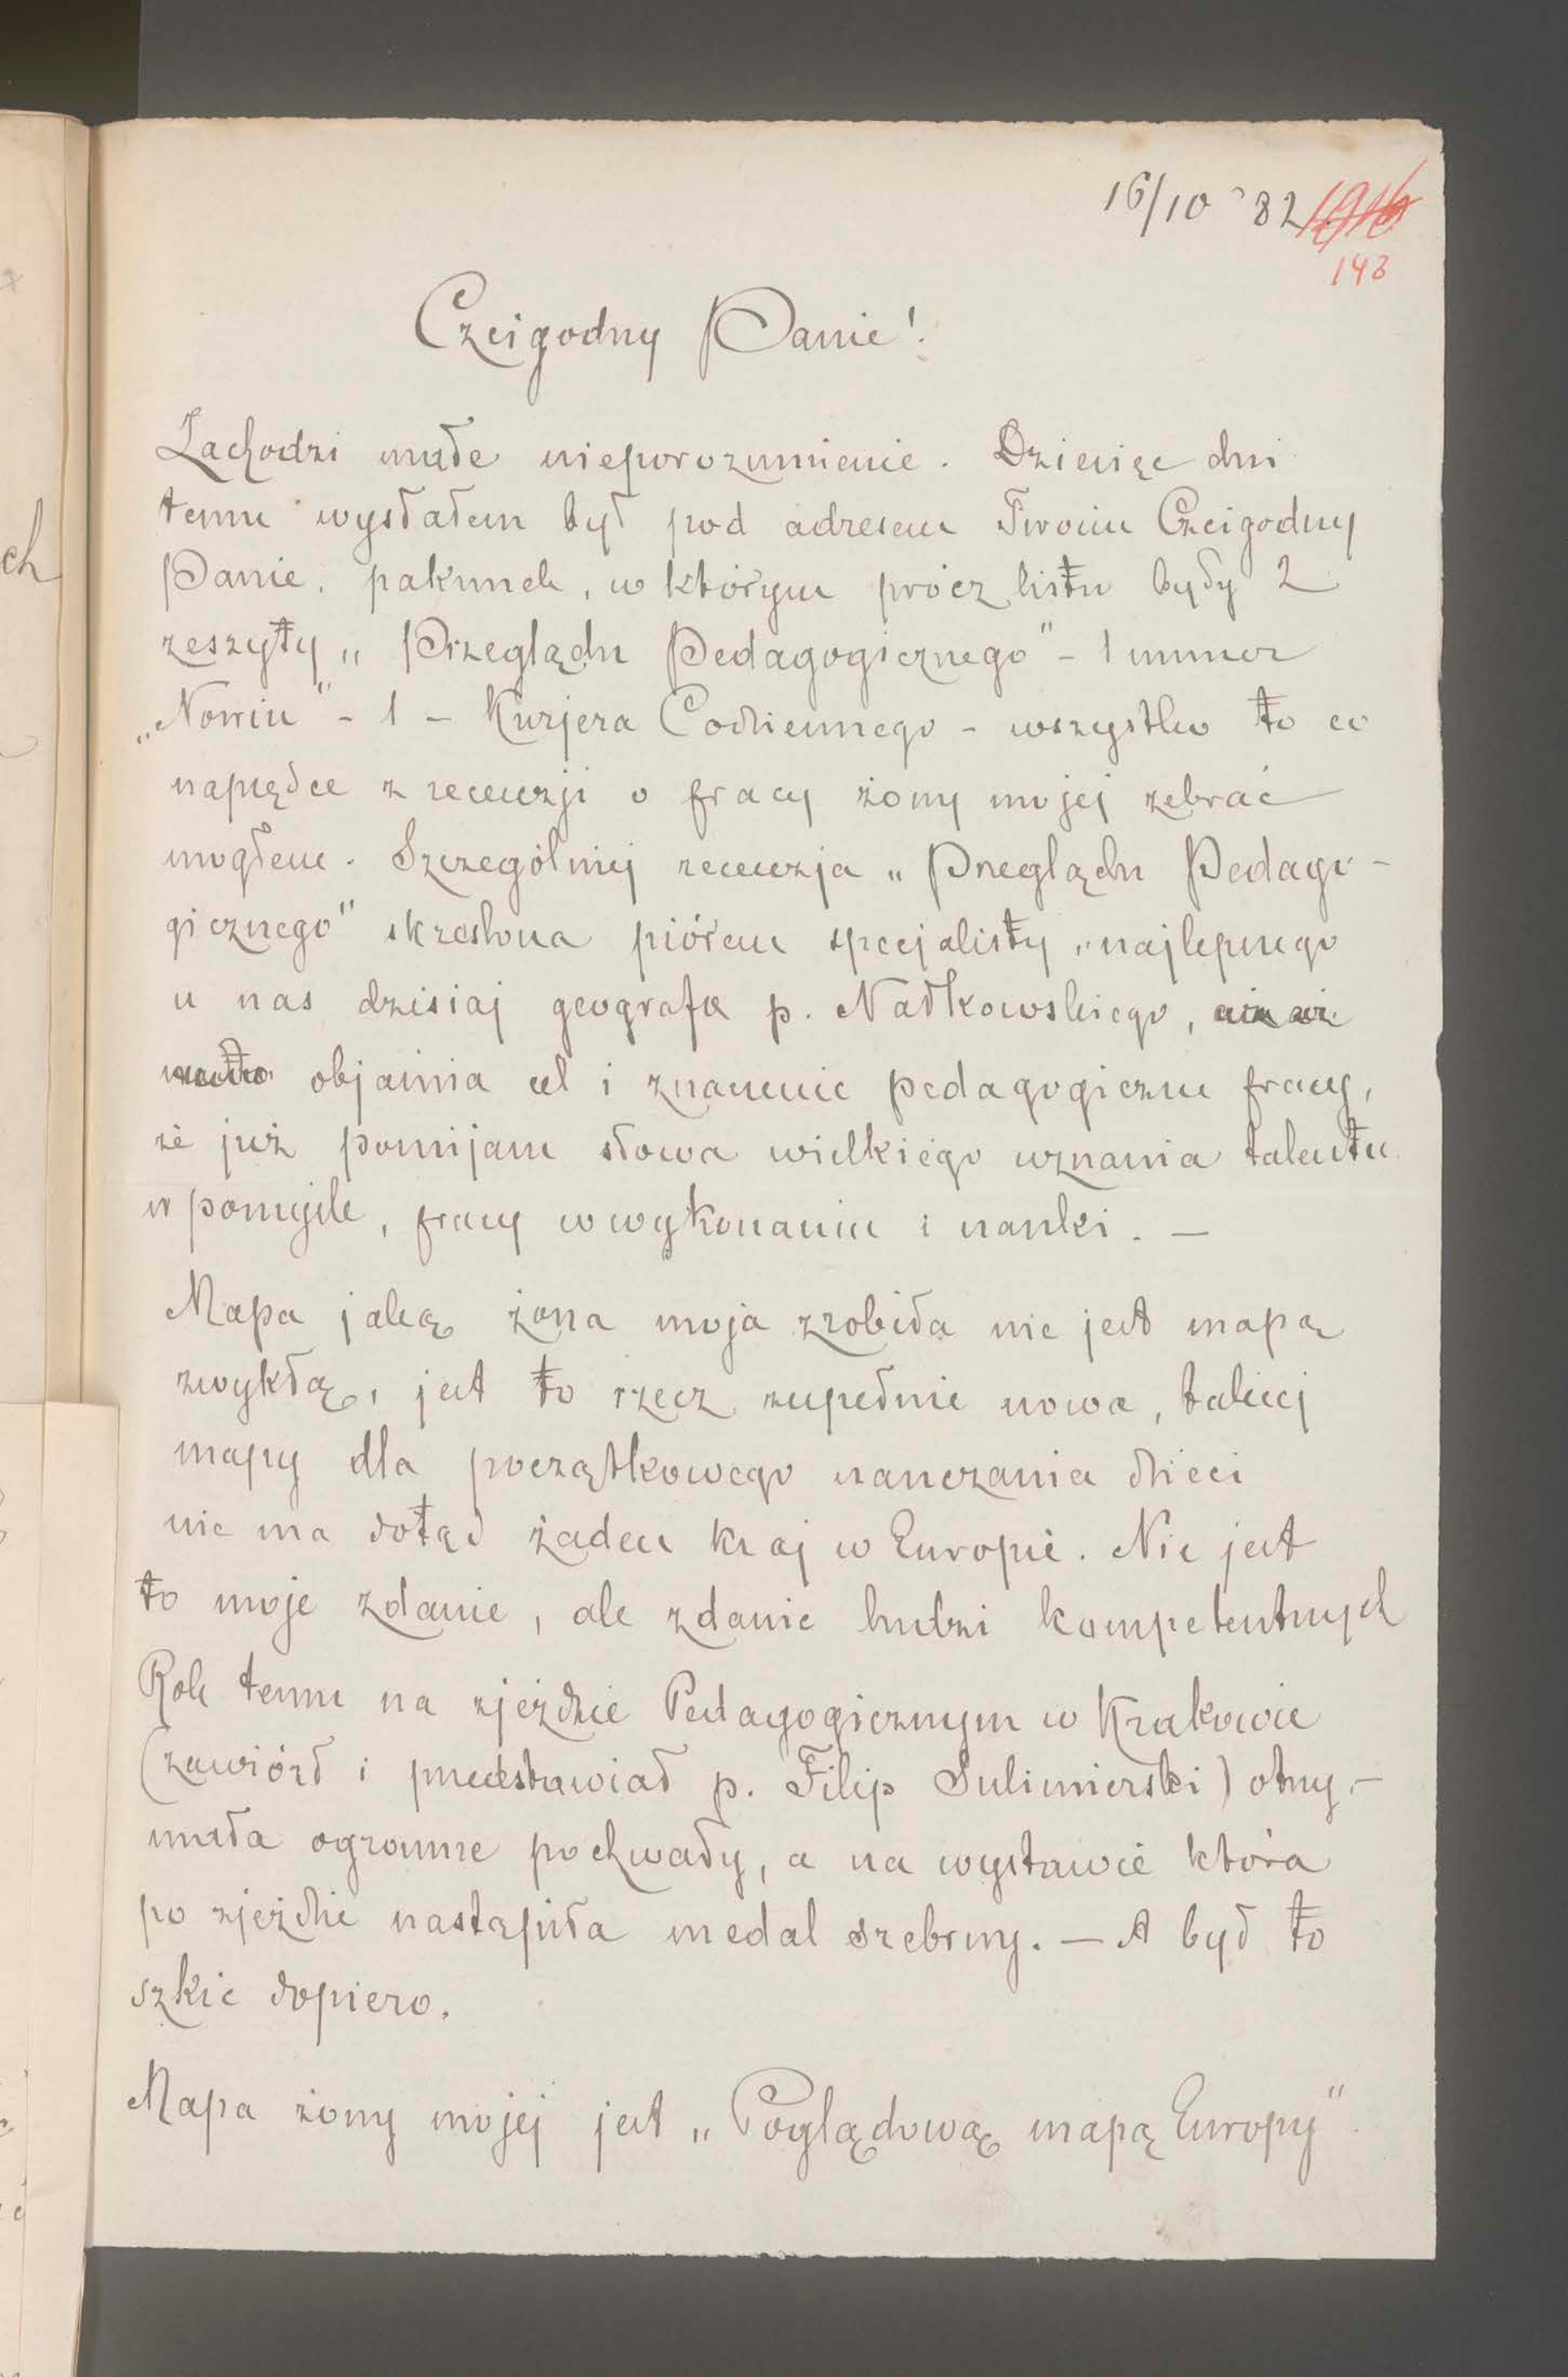 16/10 82
148
Czcigodny Panie!
Zachodzi małe nieporozumienie. Dziewięć dni
temu wysłałem był pod adresem Twoim Czcigodny
Panie. pakunek, w którym prócz listu były 2
zeszyty „Przeglądu Pedagogicznego" - 1 numer
„Nowin" - 1 - Kurjera Codziennego - wszystko to co
naprędce z recenzji o pracy żony mojej zebrać
mogłem. Szczególniej recenzja „Przeglądu Pedago-
gicznego" skreślona piórem specjalisty, najlepszego
u nas dzisiaj geografa p. Nałkowskiego,
objaśnia cel i znaczenie pedagogiczne pracy,
że już pomijam słowa wielkiego uznania talentu
w pomyśle, pracy w wykonaniu i nauki. —
Mapa jaką żona moja zrobiła nie jest mapą
zwykłą, jest to rzecz zupełnie nowa, takiej
mapy dla początkowego nauczania dzieci
nie ma dotąd żaden kraj w Europie. Nie jest
to moje zdanie, ale zdanie ludzi kompetentnych
Rok temu na zjeździe Pedagogicznym w Krakowie
(zawiózł i przedstawiał p. Filip Sulimierski) otrzy-
mała ogromne pochwały, a na wystawie która
po zjeździe nastąpiła medal srebrny. — A był to
szkic dopiero.
Mapa żony mojej jest „Poglądową mapą Europy"